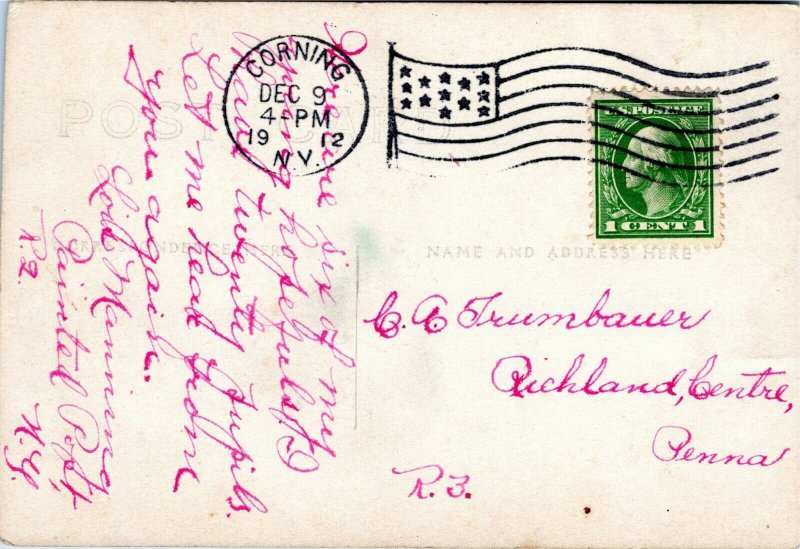 Here are six of my
young hopefuls. I
have twenty pupils.
Let me hear from
you again.
Lou Manning
Painted Post,
R.2. N.Y.
POST CARD
CORRESPONDENCE HERE
NAME AND ADDRESS HERE
CORNING
DEC 9
4-PM
1912
N.Y.
U.S. POSTAGE
1 CENT 1
C. C. Trumbauer
Richland, Centre,
Penna
R.3.